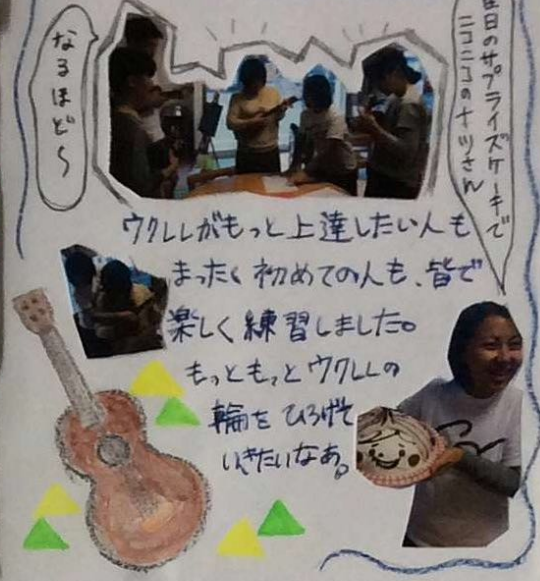 なるほど〜
日のサプライズケーキで
ニコニコのナツさん
ウクレレがもっと上達したい人も
まったく初めての人も、皆で
楽しく練習しました。
もっともっとウクレレの
輪をひろげて
いきたいなあ。